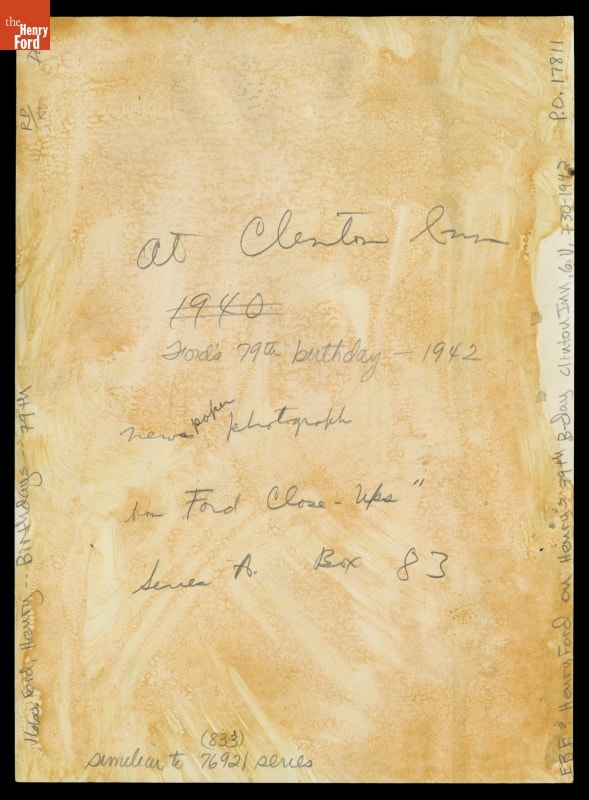 the
Henry
Ford
at Clinton Inn
1940
Ford's 79th birthday - 1942
newspaper photograph
Ford Close-Ups"
Series A. Box 83
(833)
similiar to 76921 series
Ford, Henry -- Birthdays -- 79th
EBF & Henry Ford on Henry's 79th B-day Clinton Inn, G.V. 7-30-1942 P.O. 17811